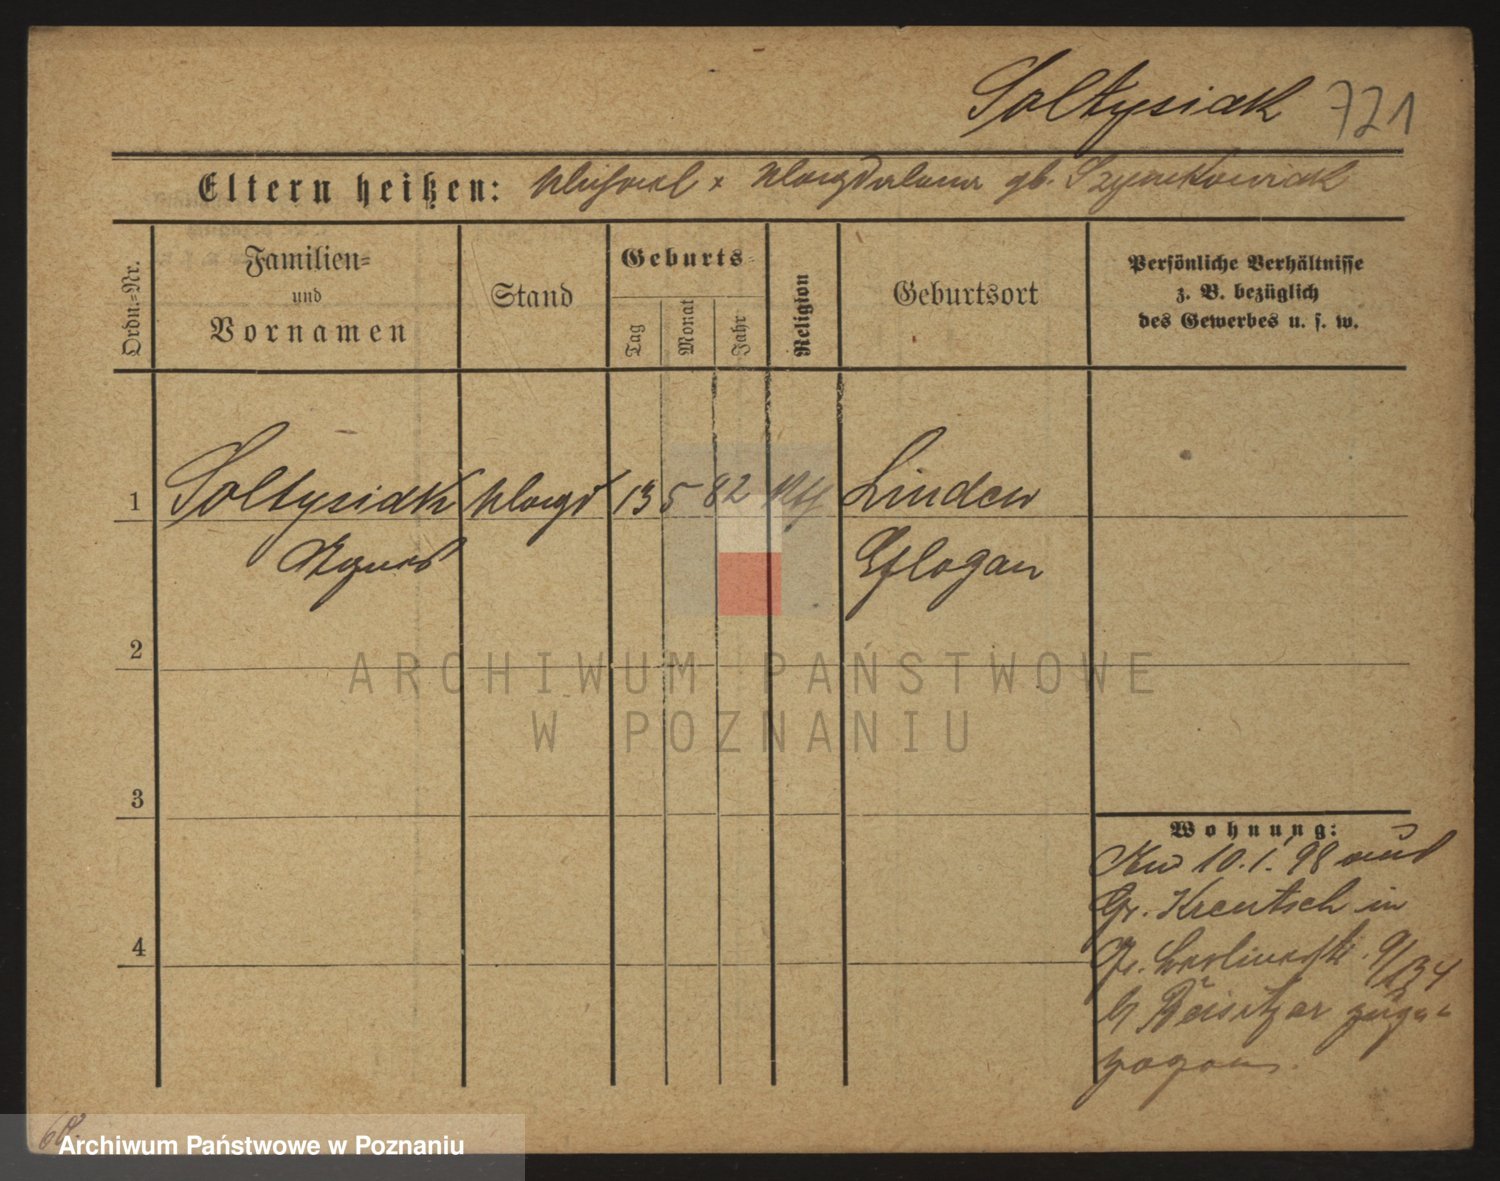 Soltysiak 721
Eltern heißen: Michael + Magdalena gb. Szymkowiak
Ordn.-Nr.
Familien-
und
Vornamen
Stand
Geburts-
Tag
Monat
Jahr
Religion
Geburtsort
Persönliche Verhältnisse
z. B. bezüglich
des Gewerbes u. s. w.
1 Soltysiak Magd 13 5 82 Linden
Agnes
2
3
4
Wohnung:
10.1.98 aus
Gr. Kreutsch in
9/134
b Beisitzer zuge-
zogen.
ARCHIWUM PAŃSTWOWE
W POZNANIU
Archiwum Państwowe w Poznaniu